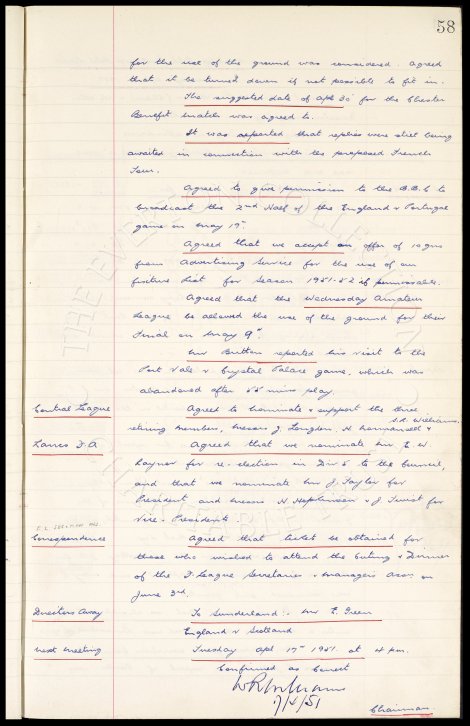 58
for the use of the ground was considered. Agreed
that it be turned down if not possible to fit in.
The suggested date of Apl 30th for the Chester
Benefit match was agreed to.
It was reported that replies were still being
awaited in connection with the proposed French
Tour.
Agreed to give permission to the B.B.C to
broadcast the 2nd Half of the England v Portugal
game on May 19th.
Agreed that we accept an offer of 10 gns
from Advertising Service for the use of our
fixture list for Season 1951-52 if permissable.
Agreed that the Wednesday Amateur
League be allowed the use of the ground for their
Final on May 9th.
Mr Button reported his visit to the
Port Vale v Crystal Palace game, which was
abandoned after 55 mins play.
Central League
Agreed to nominate & support the three
S.R. Williams.
retiring members, Messrs J. Longdon, H.
Lancs F.A
Agreed that we nominate Mr E. W.
Layner for re-election in Div 5 to the Council,
and that we nominate Mr J. Taylor for
President and Messrs H Hopkinson & J Twist for
Vice-Presidents.
Correspondence
Agreed that ticket be obtained for
those who wished to attend the Outing & Dinner
of the F. League Secretaries & Managers Assn. on
June 3rd.
Directors Away
To Sunderland:- Mr E. Green
England v Scotland
Next Meeting
Tuesday Apl 17th 1951. at 4 pm.
Confirmed as Correct
W R Williams
17/4/51
Chairman.